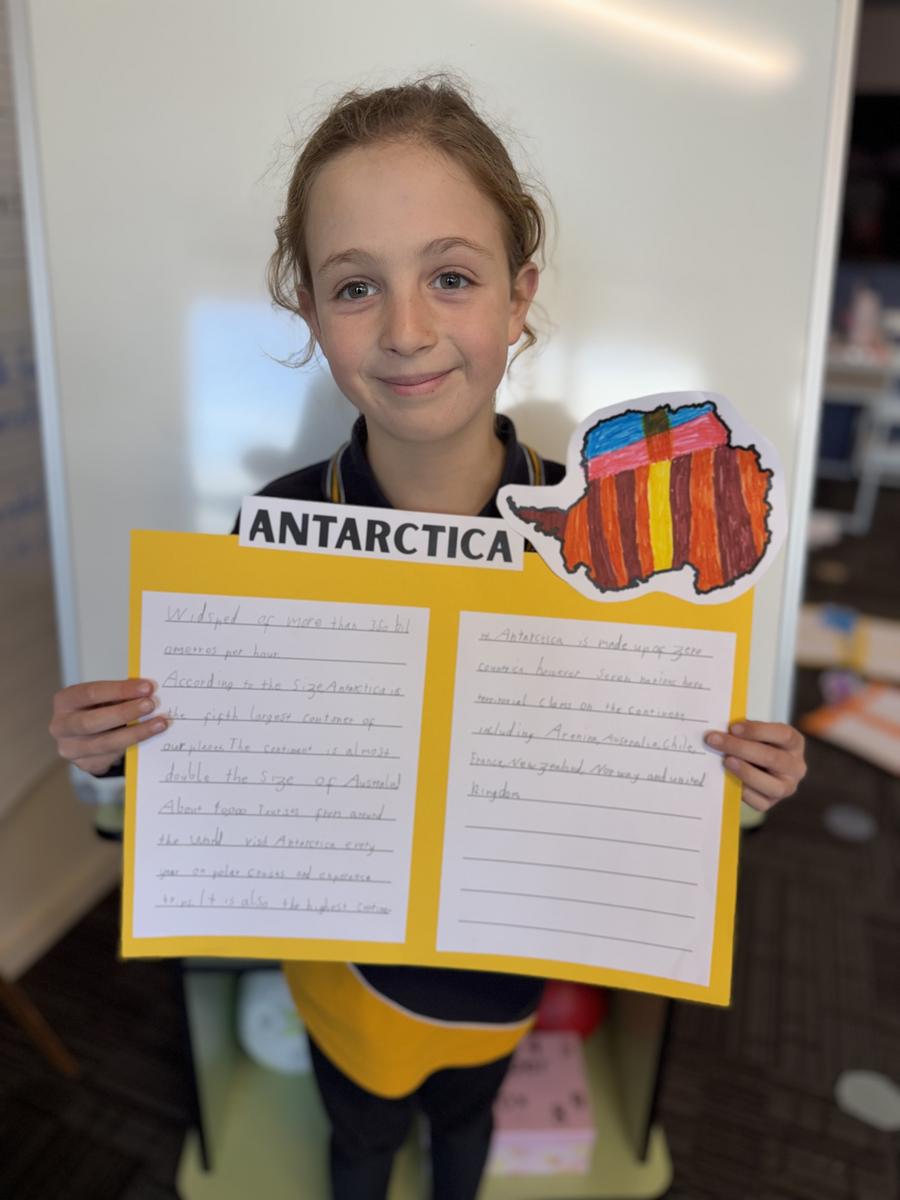 ANTARCTICA
Widsped of more than 320 kil
ometros per hour
According to the Size Antarctica is
the fifth largest contoner of
our planes The continent is almost
double the Size of Australal
About 40000 Tourists from around
the world visit Antarctica every
year on polar cruses and experence
trips It is also the highest contine
Antarctica is made up of zero
countrica however Seven nations have
territorial clams on the continent
including Arenina, Australia, Chile,
France, New zealand, Norway and united
kingdom